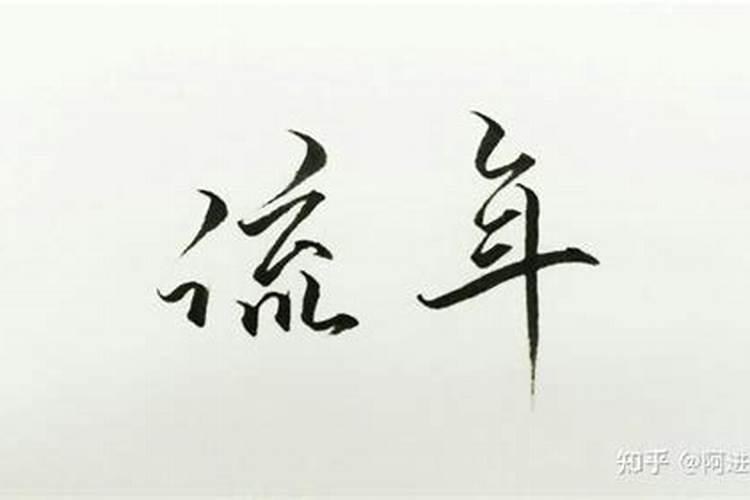 流年
知乎 @阿进